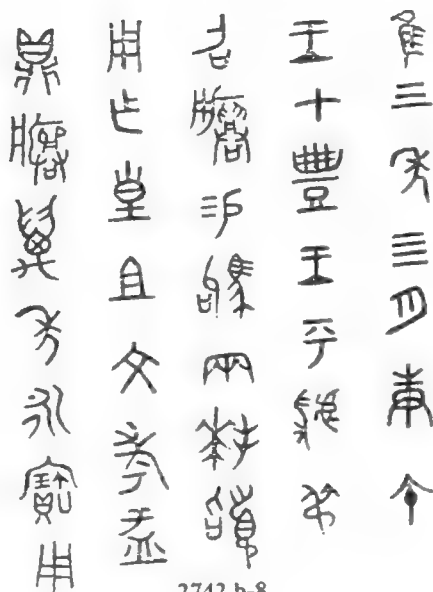 隹三年四月庚午
王才豐王乎虢弔
召𤼈易駒兩拜稽
用乍皇且文考盂
鼎𤼈萬年永寶用
2742 b-8